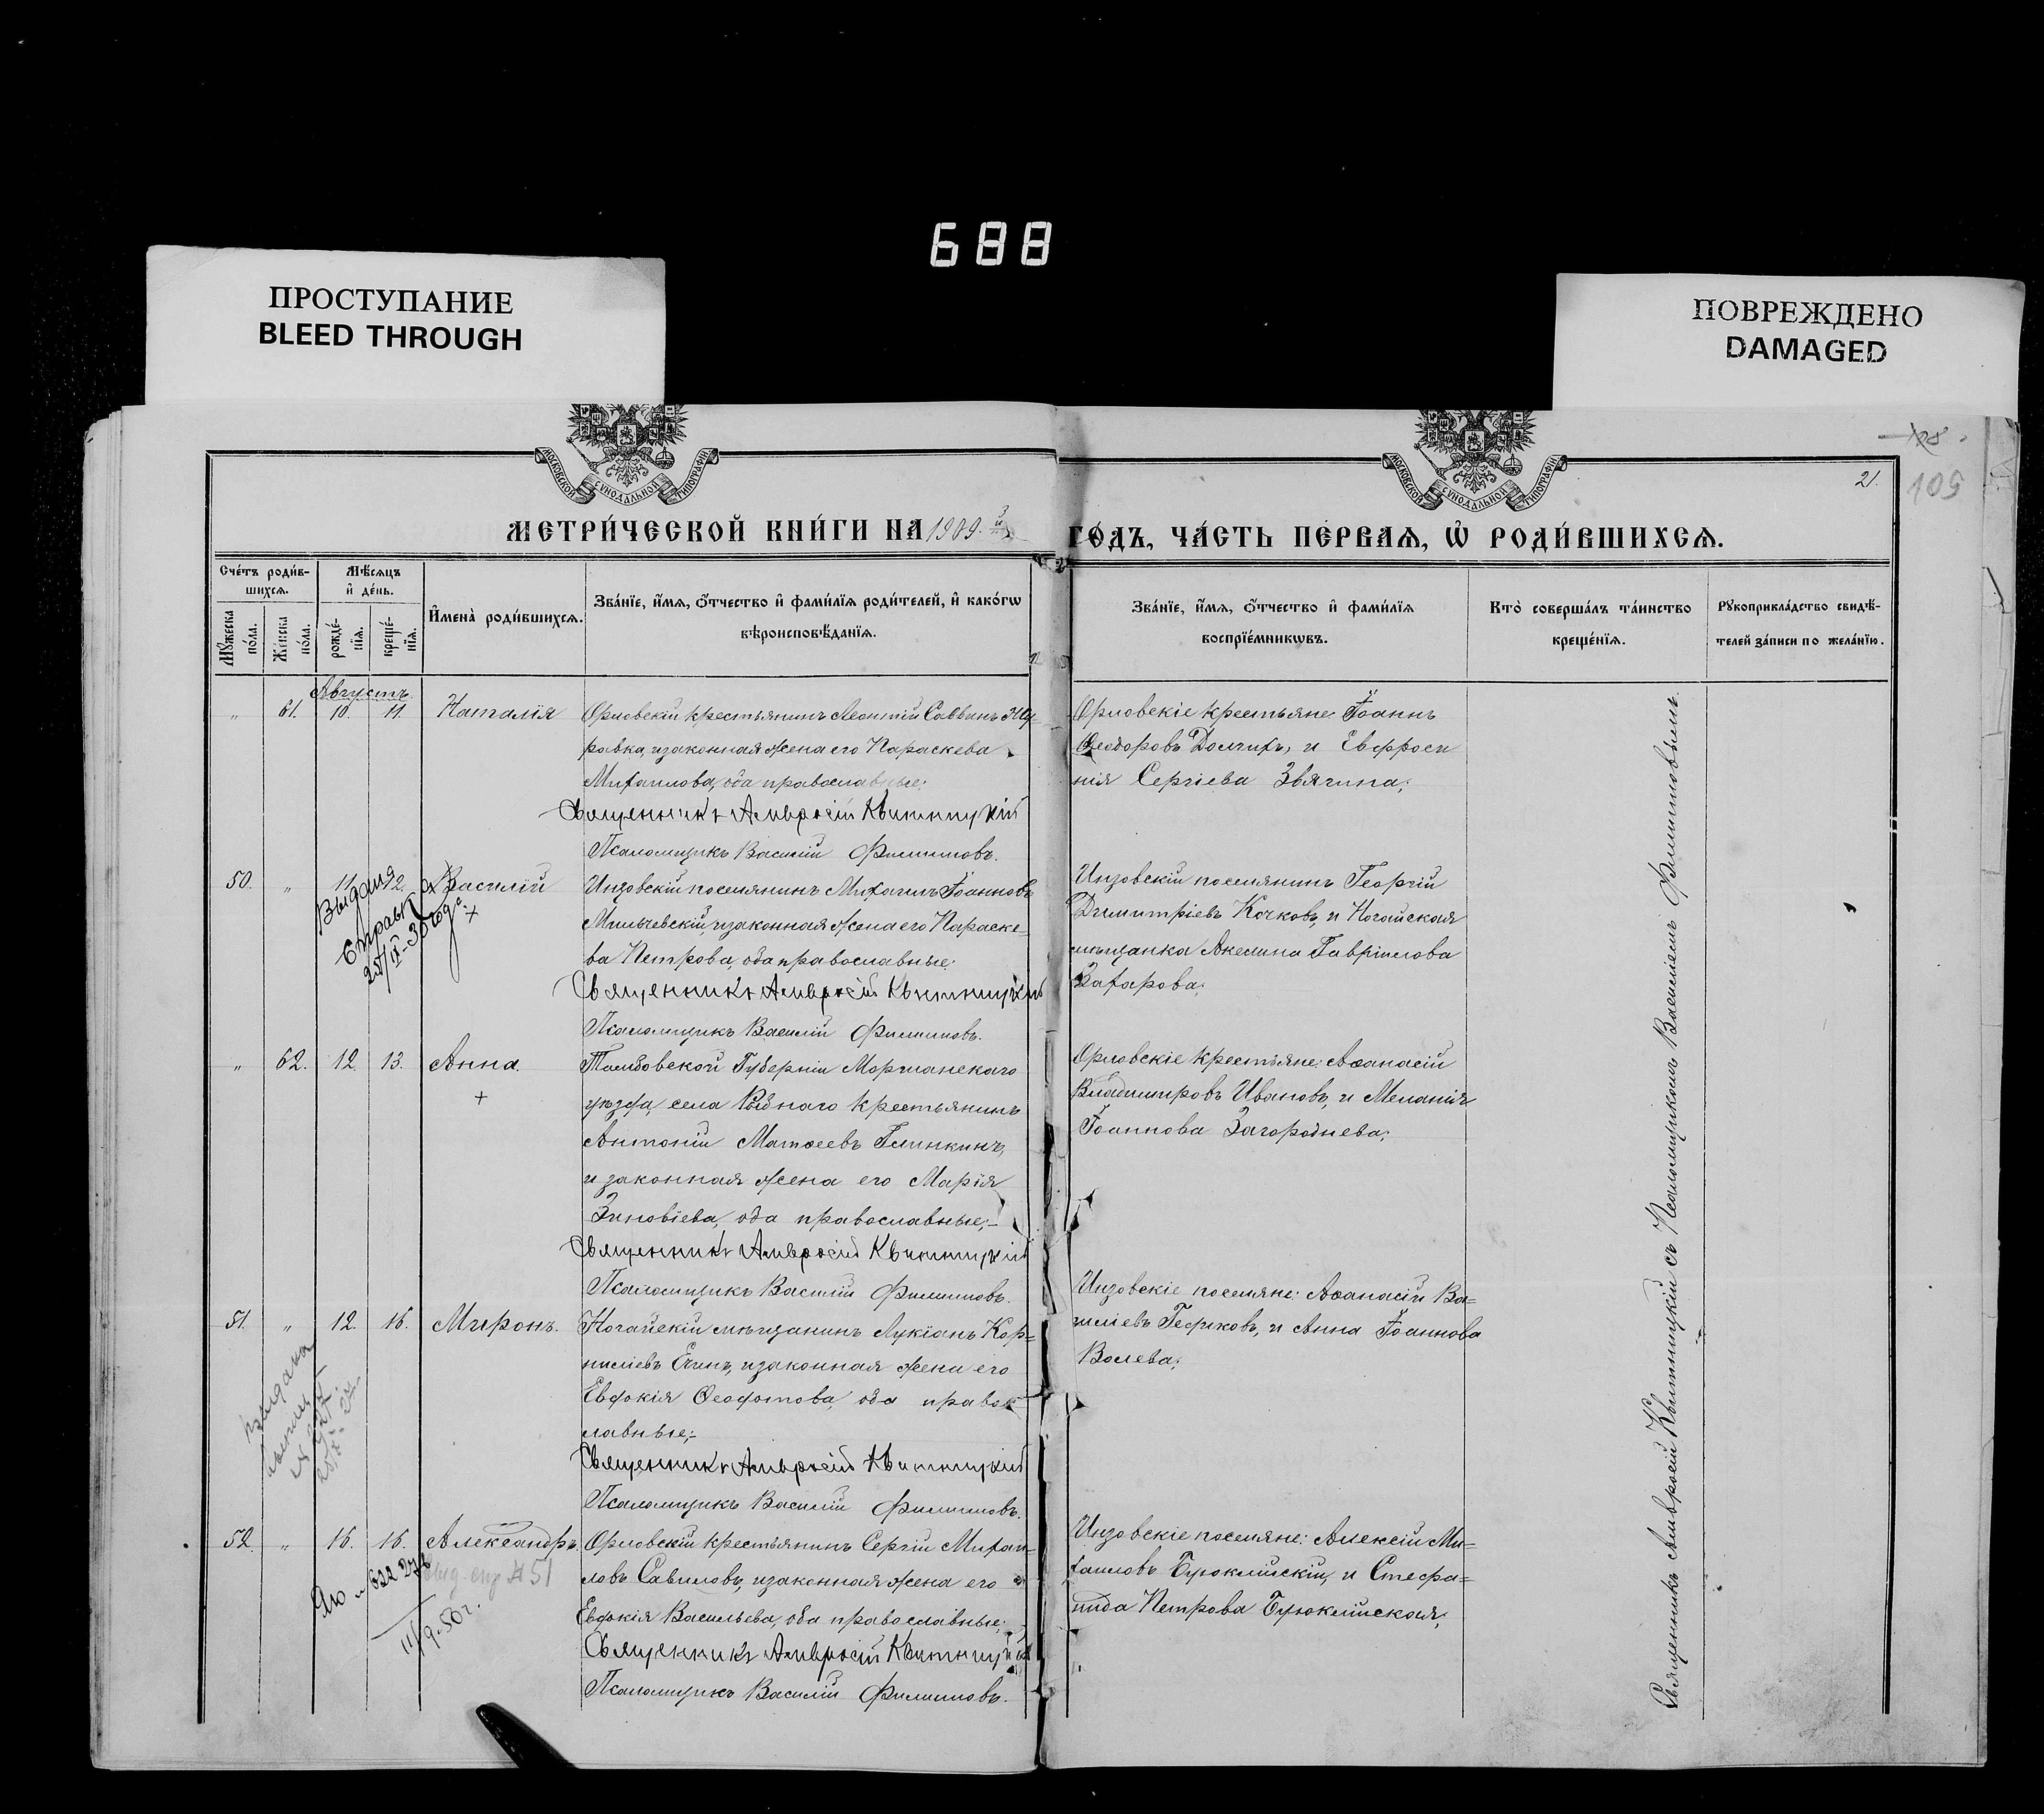 688
ПРОСТУПАНИЕ
BLEED THROUGH
ПОВРЕЖДЕНО
DAMAGED
МОСКОВСКОЙ СѴНОДАЛЬНОЙ ТИПОГРАФІИ
МОСКОВСКОЙ СѴНОДАЛЬНОЙ ТИПОГРАФІИ
21.
105
МЕТРИ́ЧЕСКОЙ КНИ́ГИ НА 1909.й
ГО́ДЪ, ЧА́СТЬ ПЕ́РВАѦ, Ѡ҆ РОДИ́ВШИХСѦ.
Сче́тъ роди́в-
шихсѧ.
Мꙋ́жеска по́ла.
Же́нска по́ла.
Мѣ́сѧцъ
и҆ де́нь.
рожде́-
нїѧ.
креще́-
нїѧ.
И҆мена̀ роди́вшихсѧ.
Зва́нїе, и҆́мѧ, ѻ҆́тчество и҆ фами́лїѧ роди́телей, и҆ како́гѡ
вѣроисповѣ́данїѧ.
Зва́нїе, и҆́мѧ, ѻ҆́тчество и҆ фами́лїѧ
воспрїе́мникѡвъ.
Кто̀ соверша́лъ та́инство
креще́нїѧ.
Рꙋкоприкла́дство свидѣ́-
телей за́писи по жела́нїю.
Августъ.
" 61. 10. 11. Наталія
Орловскій крестьянинъ Леонтій Саввинъ
равка, и законная жена его Параскева
Михаилова, оба православные;
Священникъ Амвросій Квитницкій
Псаломщикъ Василій Филиповъ.
Орловскіе крестьяне: Іоаннъ
Ѳеодоровъ Долгихъ, и Евфроси
нія Сергіева Звягина;
50. " 11. 12. Василій
+
Выдана
справка
25/IX-36 года
Инзовскій поселянинъ Михаилъ Іоанновъ
Мильчевскій, и законная жена его Параске-
ва Петрова, оба православные;
Священникъ Амвросій Квитницкій
Псаломщикъ Василій Филиповъ.
Инзовскій поселянинъ Георгій
Димитріевъ Кочковъ, и Ногайская
мѣщанка Акелина Гавріилова
Захарова;
" 62. 12 13. Анна.
+
Тамбовской Губерніи Моршанскаго
уѣзда, села Рыбнаго крестьянинъ
Антоній Матѳеевъ Глинкинъ,
и законная жена его Марія
Зиновіева, оба православные;-
Священникъ Амвросій Квитницкій
Псаломщикъ Василій Филиповъ.
Орловскіе крестьяне: Аѳанасій
Владимировъ Ивановъ, и Меланія
Іоаннова Загороднева;
51. " 12. 16. Миронъ.
Выдана
Ногайскій мѣщанинъ Лукіанъ Кор-
ниліевъ Ечинъ, и законная жена его
Евдокія Ѳеодотова, оба правос
лавные;-
Священникъ Амвросій Квитницкій
Псаломщикъ Василій Филиповъ.
Инзовскіе поселяне: Аѳанасій Ва-
силіевъ Гефиковъ, и Анна Іоаннова
Волева;
52. " 16. 16. Александръ.
выд. спр № 51
11/9.50г.
Орловскій крестьянинъ Сергій Михаи-
ловъ Савиловъ, и законная жена его
Евдокія Васильева, оба православные;
Священникъ Амвросій Квитницкій
Псаломщикъ Василій Филиповъ.
Инзовскіе поселяне: Алексій Ми-
хаиловъ Буюклійскій, и Стефа-
нида Петрова Буюклійская;
Священникъ Амвросій Квитницкій съ Псаломщикомъ Василіемъ Филиповымъ.